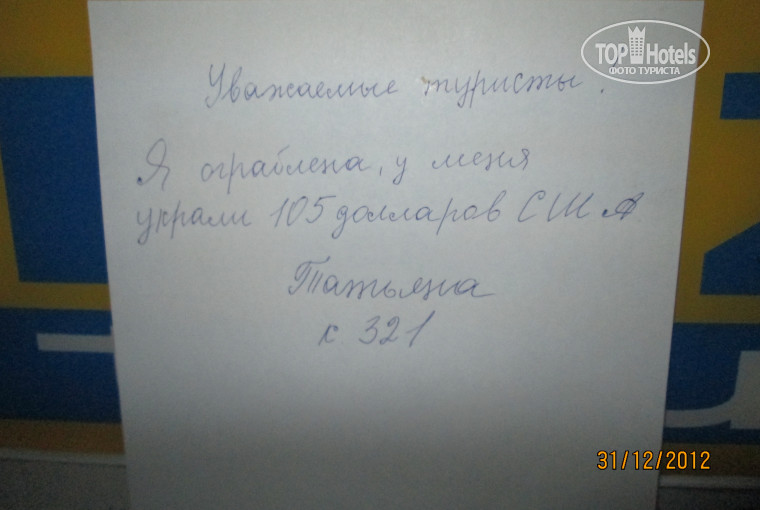 TOP Hotels
ФОТО ТУРИСТА
Уважаемые туристы.
Я ограблена, у меня
украли 105 долларов США
Татьяна
к 321
31/12/2012